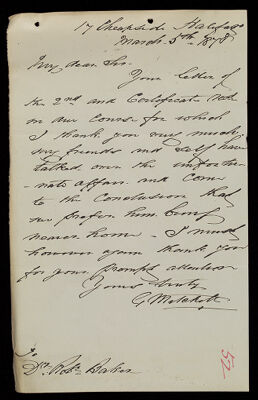 17 Cheapside Halifax
March 5th 1878
My dear Sir.
Your letter of
the 2nd and Certificate
in due course for which
I thank you very much,
my friends and self have
talked over the unfortu-
nate affair. and come
to the conclusion that
we prefer him being
nearer home - I must
however again thank you
for your prompt attention
Yours truly
G Metcalfe
To
Dr. Robt. Baker
52